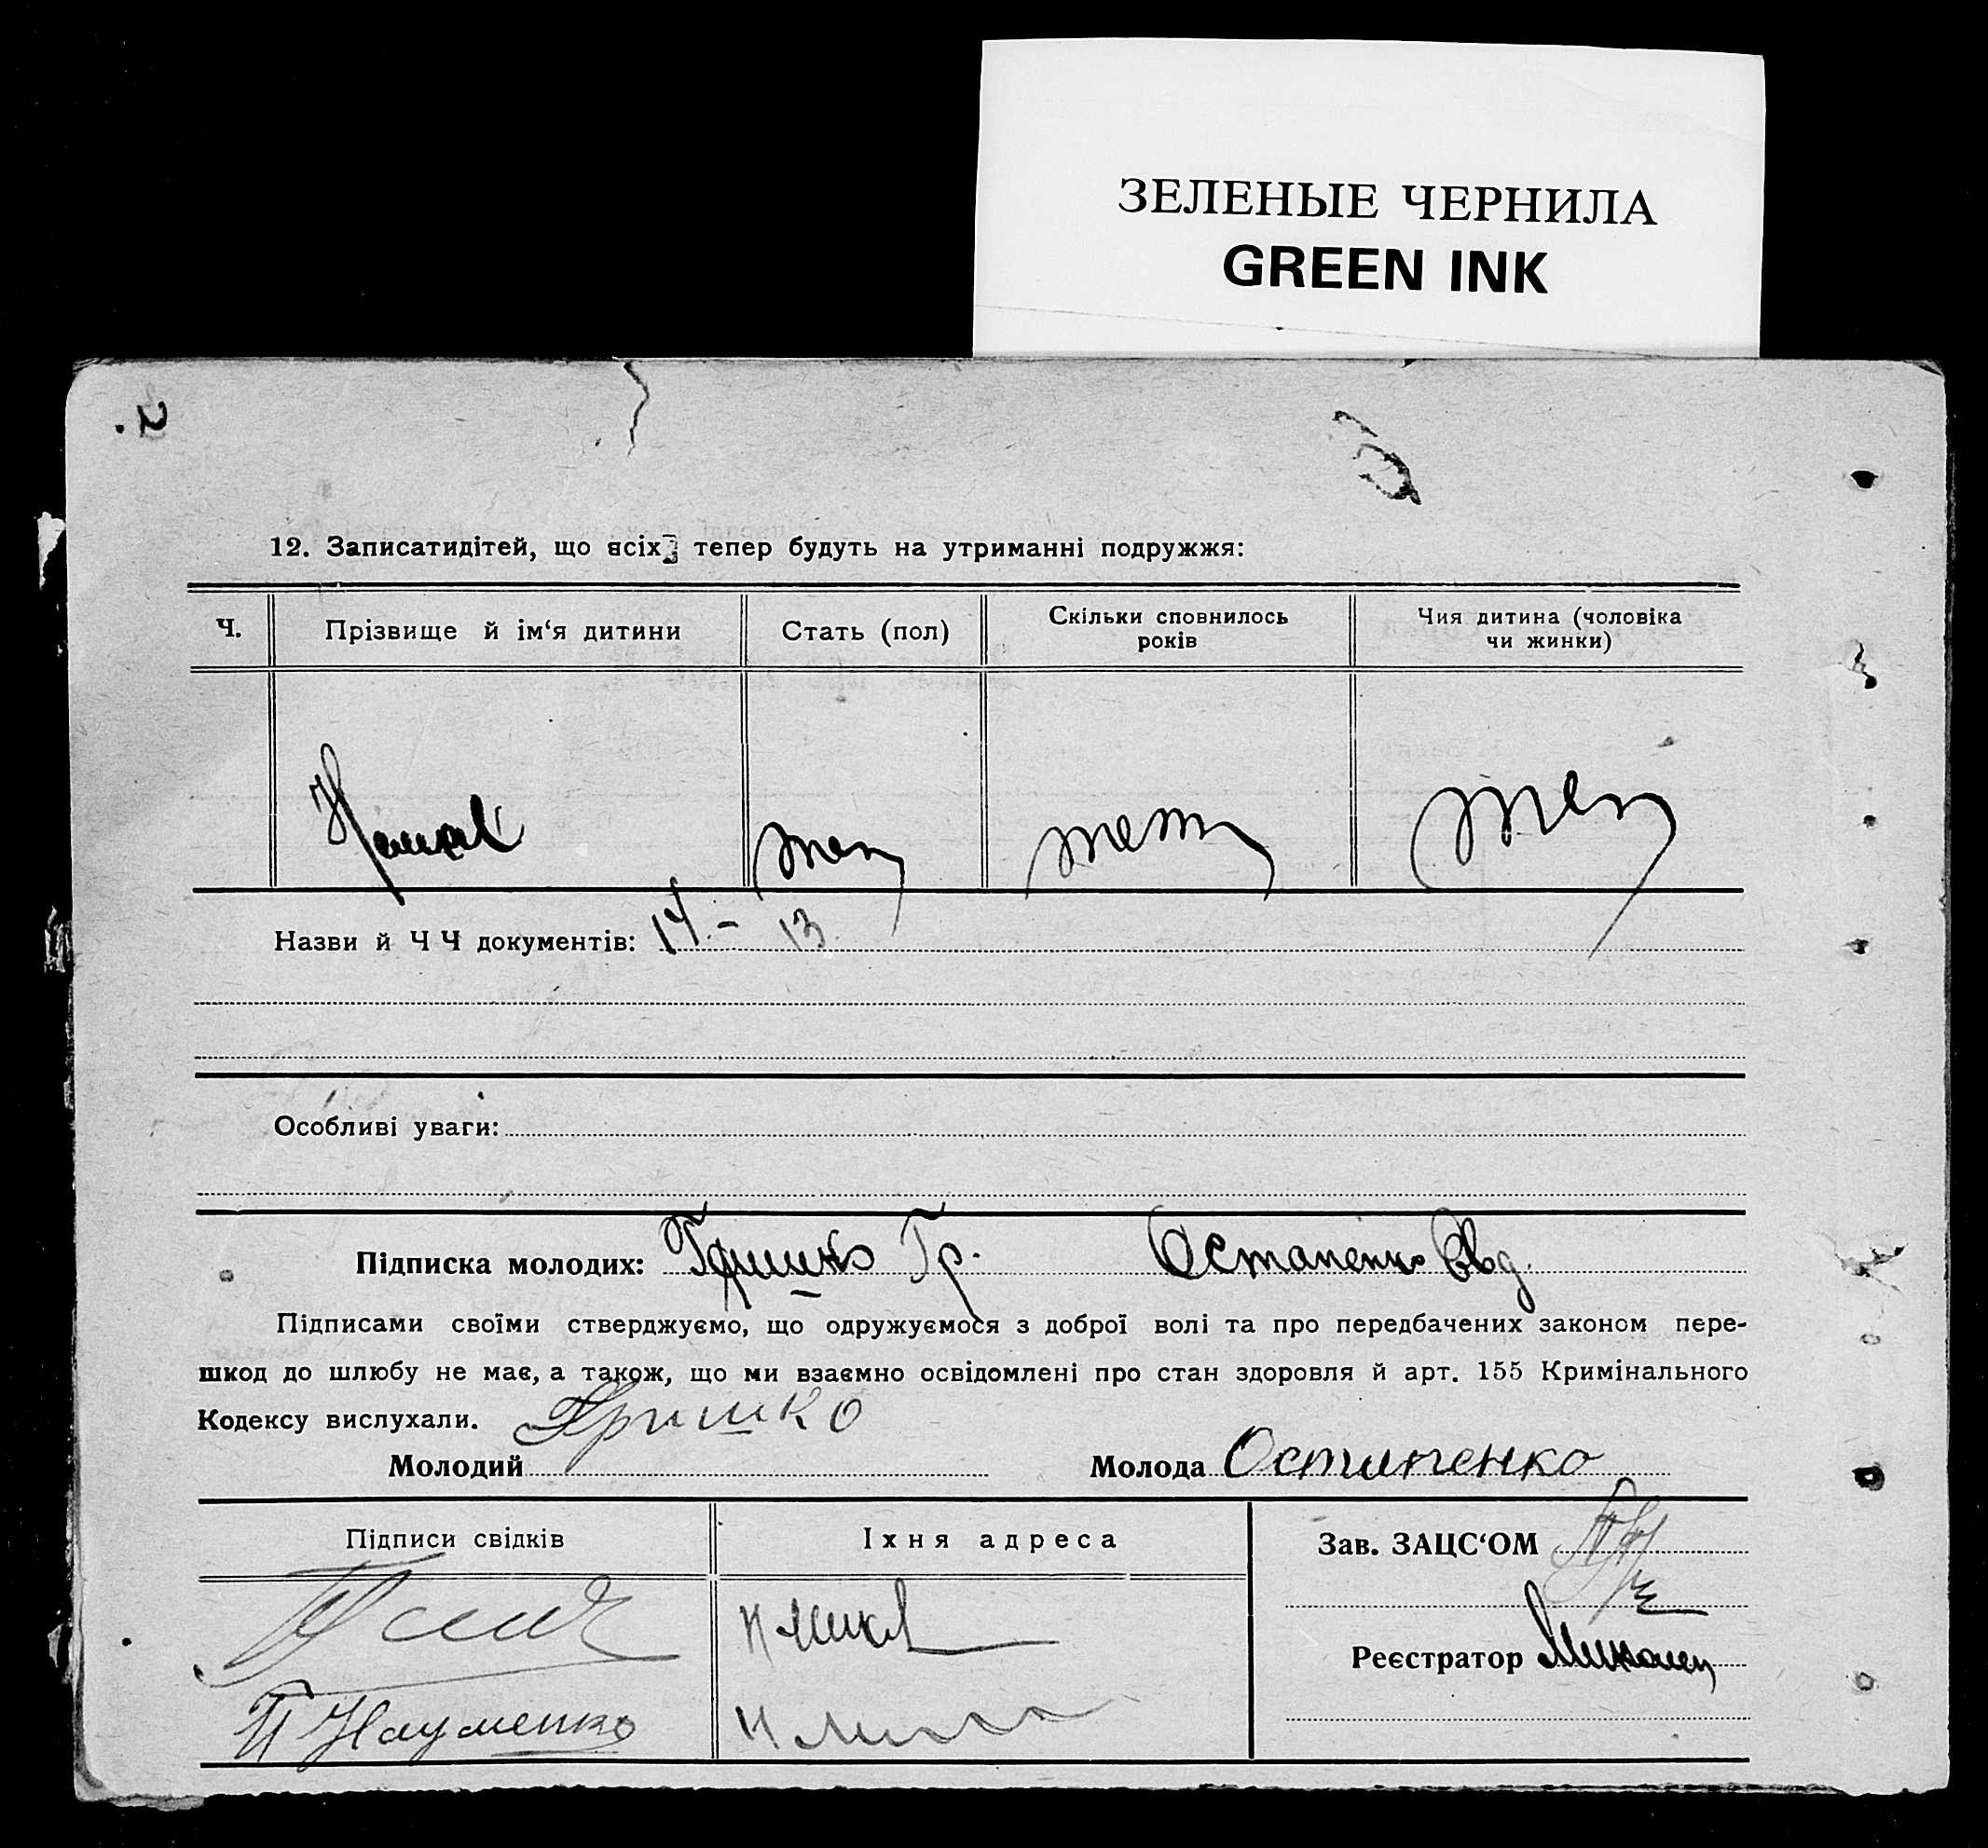 ЗЕЛЕНЫЕ ЧЕРНИЛА
GREEN INK
12. Записатидітей, що всіх тепер будуть на утриманні подружжя:
Ч.
Прізвище й ім‘я дитини
Стать (пол)
Скільки сповнилось
років
Чия дитина (чоловіка
чи жинки)
Назви й Ч Ч документів: 14 - 13
Особливі уваги:
Підписка молодих: Гришко Гр. Остапенко Євд.
Підписами своїми стверджуємо, що одружуємося з доброї волі та про передбачених законом пере-
шкод до шлюбу не має, а також, що ми взаємно освідомлені про стан здоровля й арт. 155 Кримінального
Кодексу вислухали. Гришко
Молодий
Молода Остапенко
Підписи свідків
Іхня адреса
Зав. ЗАЦС‘ОМ
Реєстратор
П Науменко